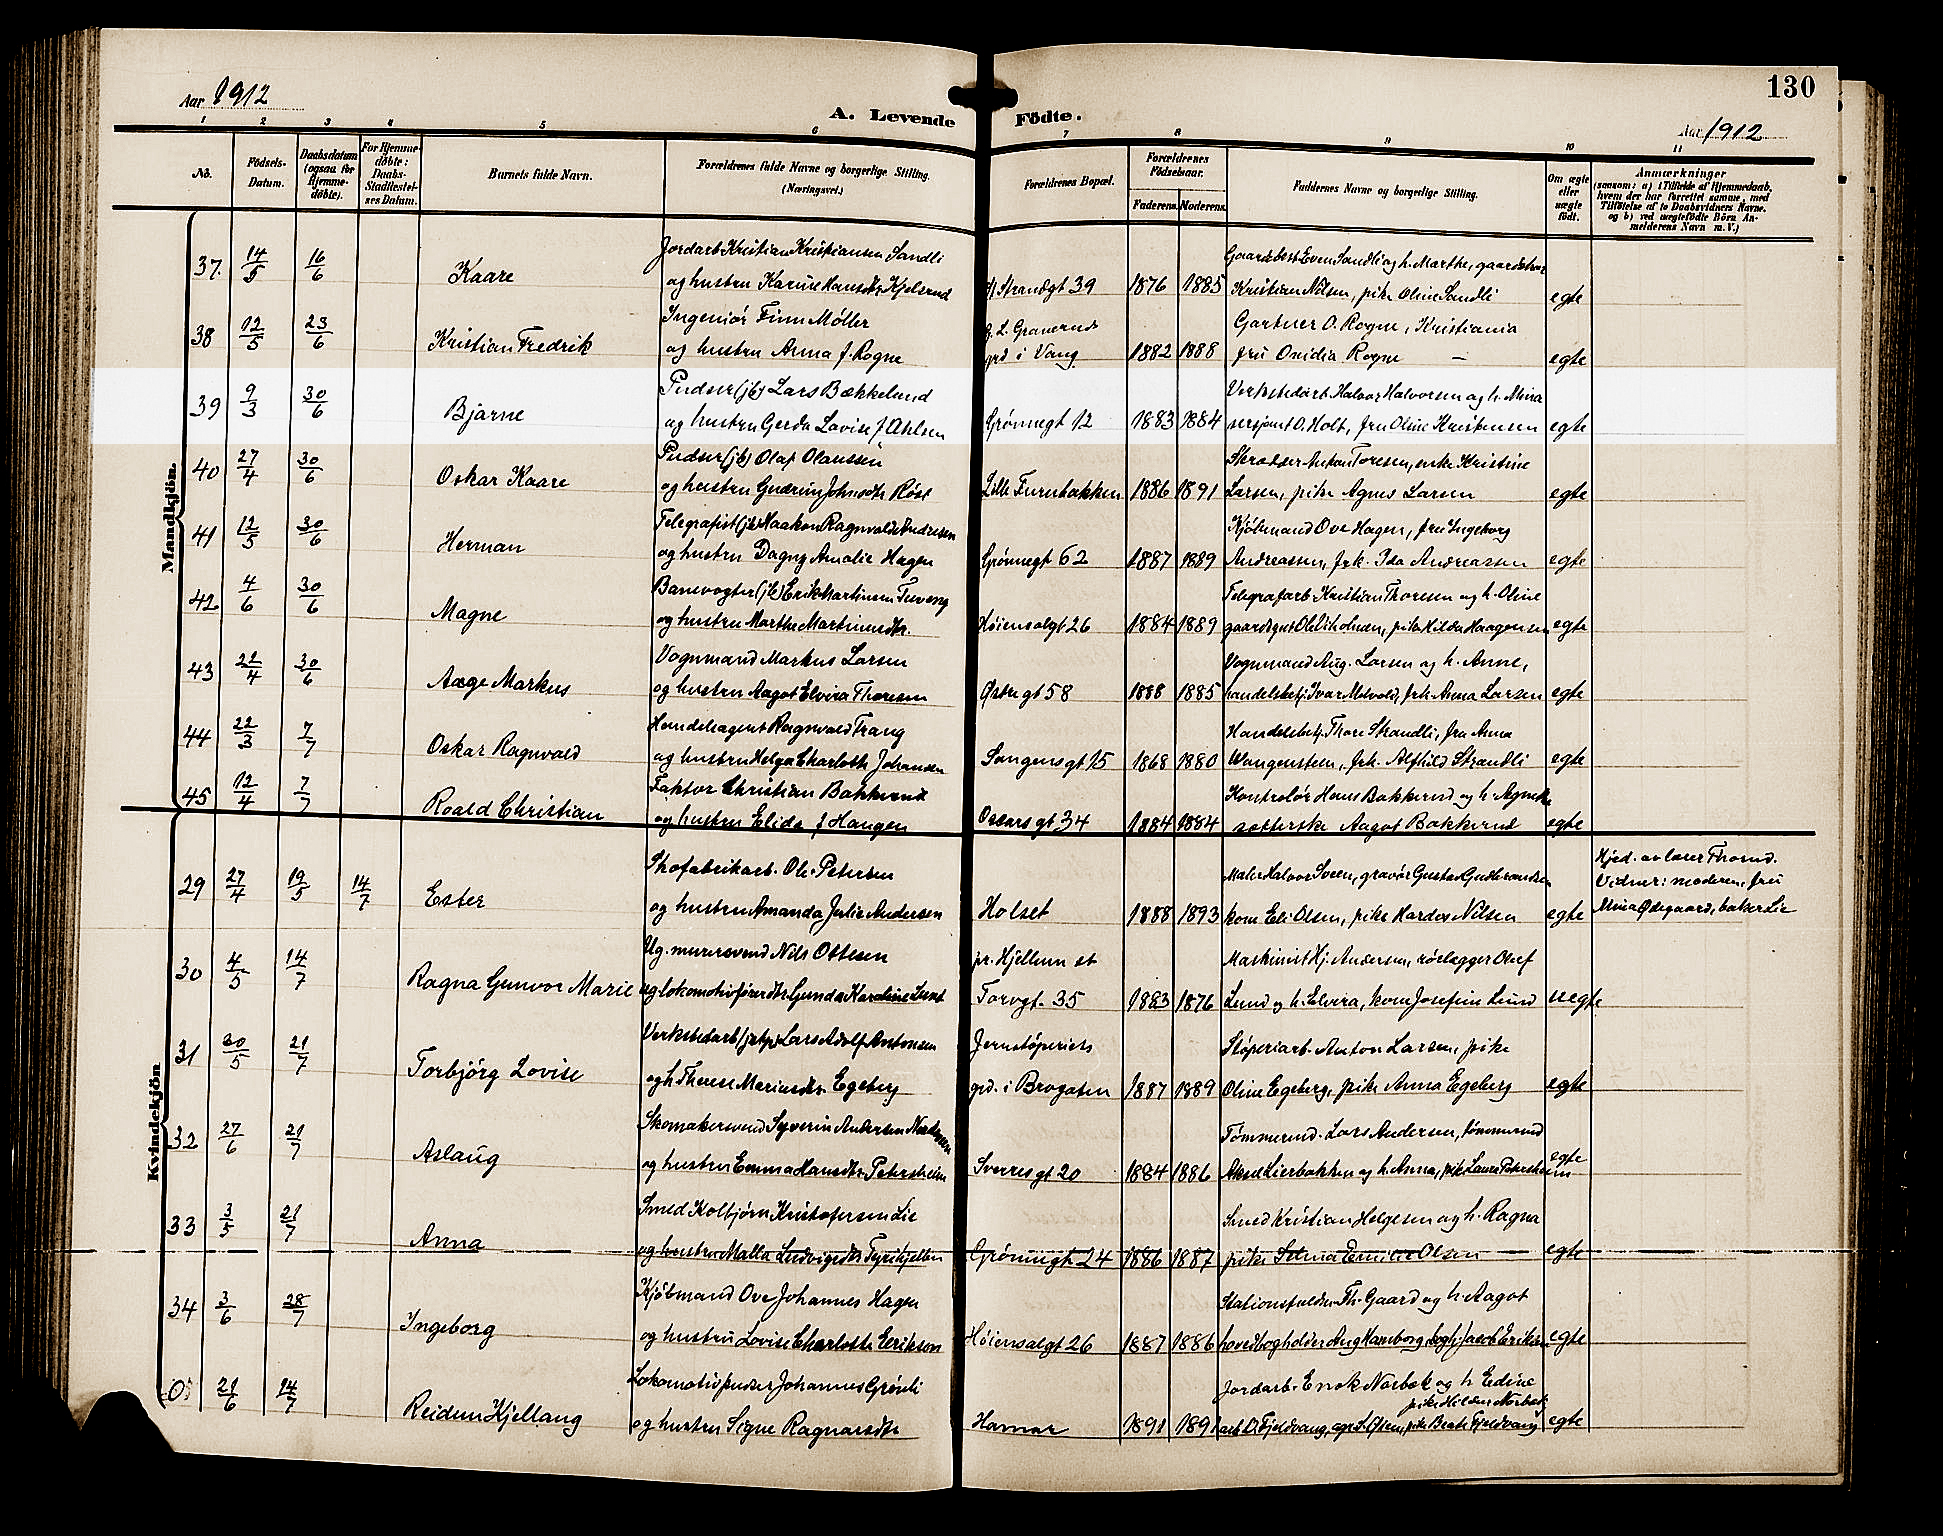 130
Aar 1912
A. Levende Födte.
Aar 1912
1 2 3 4 5 6 7 8 9 10 11
No.
Födsels-Datum.
Daabsdatum (ogsaa for Hjemme-døbte).
For Hjemme-døbte: Daabs-Stadfæstelses Datum.
Barnets fulde Navn.
Forældrenes fulde Navne og borgerlige Stilling. (Næringsvei.)
Forældrenes Bopæl.
Forældrenes Födselsaar.
Faderens. Moderens.
Faddernes Navne og borgerlige Stilling.
Om ægte eller uægte födt.
Anmærkninger
(saasom: a) i Tilfælde af Hjemmedaab, hvem der har forrettet samme, med Tilføielse af to Daabsvidners Navne, og b) ved uægtefødte Börn Anmelderens Navn m. V.)
Mandkjön
37. 14/5 16/6 Kaare
Jordarb Kristian Kristiansen Sandli
og hustru Karine Hansdtr Kjelsrud
Strandgt 39 1876 1885
Gaardsbest Even Sandli og h. Marthe, gaardsbr
Kristian Nilsen, pike Oline Sandli egte
38 12/5 23/6 Kristian Fredrik
Ingeniör Finn Møller
og hustru Anna f. Rogne
grd i Vang 1882 1888
Gartner O. Rogne, Kristiania
fru Ovidia Rogne — egte
39 9/3 30/6 Bjarne
Pudser (jb) Lars Bækkelund
og hustru Gerda Lovise f. Ohlsen
Grönnegt 12 1883 1884
Verkstedarb Halvor Halvorsen og h. Mina
sersjant O. Holt, fru Oline Kristensen egte
40 27/4 30/6 Oskar Kaare
Pudser (jb) Olaf Olaussen
og hustru Gudrun Johnsdtr Røst
Lille Furubakken 1886 1891
Skrædder Anton Toresen, enke Kristine
Larsen, pike Agnes Larsen egte
41 12/5 30/6 Herman
Telegrafist (jb) Haakon Ragnvald Andresen
og hustru Dagny Amalie Hagen
Grönnegt 62 1887 1889
Kjöbmand Ove Hagen, fru Ingeborg
Andreassen, frk. Ida Andreassen egte
42 4/6 30/6 Magne
Banevogter (jb) Erik Martinsen Tuveng
og hustru Marthe Martinusdtr.
Høiensalgt 26 1884 1889
Telegrafarb Kristian Thoresen og h. Oline
pike Hilda Haagensen egte
43 22/4 30/6 Aage Markus
Vognmand Markus Larsen
og hustru Aagot Elvira Thoresen
Østregt 58 1888 1885
Vognmand Aug. Larsen og h. Anne,
handelsbetj. Ivar Molvold, frk Anna Larsen egte
44 22/3 7/7 Oskar Ragnvald
Handelsagent Ragnvald Trang
og hustru Helga Charlotte Johansen
Sangensgt 15 1868 1880
Handelsbetj. Thore Strandli, fru Anna
Wangensteen, frk. Alfhild Strandli egte
45 12/4 7/7 Roald Christian
Faktor Christian Bakkerud
og hustru Elida f Haugen
Oscarsgt 34 1884 1884
Kontrolör Hans Bakkerud og h. Agnethe
sætterske Aagot Bakkerud egte
Kvindekjön
29 27/4 19/5 14/7 Ester
Skofabrikarb. Ole Petersen
og hustru Amanda Julie Andersen
Holset 1888 1893
Maler Halvor Sveen, gravör Gustav Gudbrandsen
kone Eli Olsen, pike Hardos Nilsen egte
Hjed. av læser Thorud.
Vidner: moderen, fru
Mina Ødegaard, baker Lie
30 4/5 14/7 Ragna Gunvor Marie
Ug. murersvend Nils Ottesen
og lokomotivförerdtr Gunda Karoline Lund
pr. Hjellum st
Torvgt. 35 1883 1876
Maskinist Hj. Andersen, rörlægger Olaf
Lund og h. Elvira, kone Josefine Lund uegte
31 30/5 21/7 Torbjörg Lovise
Verkstedarb Lars Adolf Antonsen
og h. Therese Mariusdtr. Egeberg
Jernstöperiets
grd. i Brogaten 1887 1889
Stöperiarb. Anton Larsen, pike
Oline Egeberg, pike Anna Egeberg egte
32 27/6 21/7 Aslaug
Skomakersvend Syverin Andersen
og hustru Emma Hansdtr. Petersheim
Sverresgt 20 1884 1886
Tömmermd. Lars Andersen, tömmermd
Aksel Lierbakken og h. Anna, pike Laura Petersheim egte
33 3/5 21/7 Anna
Smed Kolbjörn Kristofersen Lie
og hustru Malla Ludvigsdtr Tyrihjellen
Grönnegt 24 1886 1887
Smed Kristian Helgesen og h. Ragna
pike Selma Emilie Olsen egte
34 3/6 28/7 Ingeborg
Kjöbmand Ove Johannes Hagen
og hustru Lovise Charlotte Erikson
Høiensalgt 26 1887 1886
Stationsfuldm Th. Gaard og h. Aagot
hovedbogholder Aug Hamborg, bogh. Jacob Erikson egte
21/6 14/7 Reidun Kjellaug
Lokomotivpudser Johannes Grönli
og hustru Signe Ragnarsdtr
Hamar 1891 1891
Jordarb. Enok Norbæk og h Edine
pike Hilda Norbæk
arb O. Fjeldvang, pike Beate Fjeldvang egte